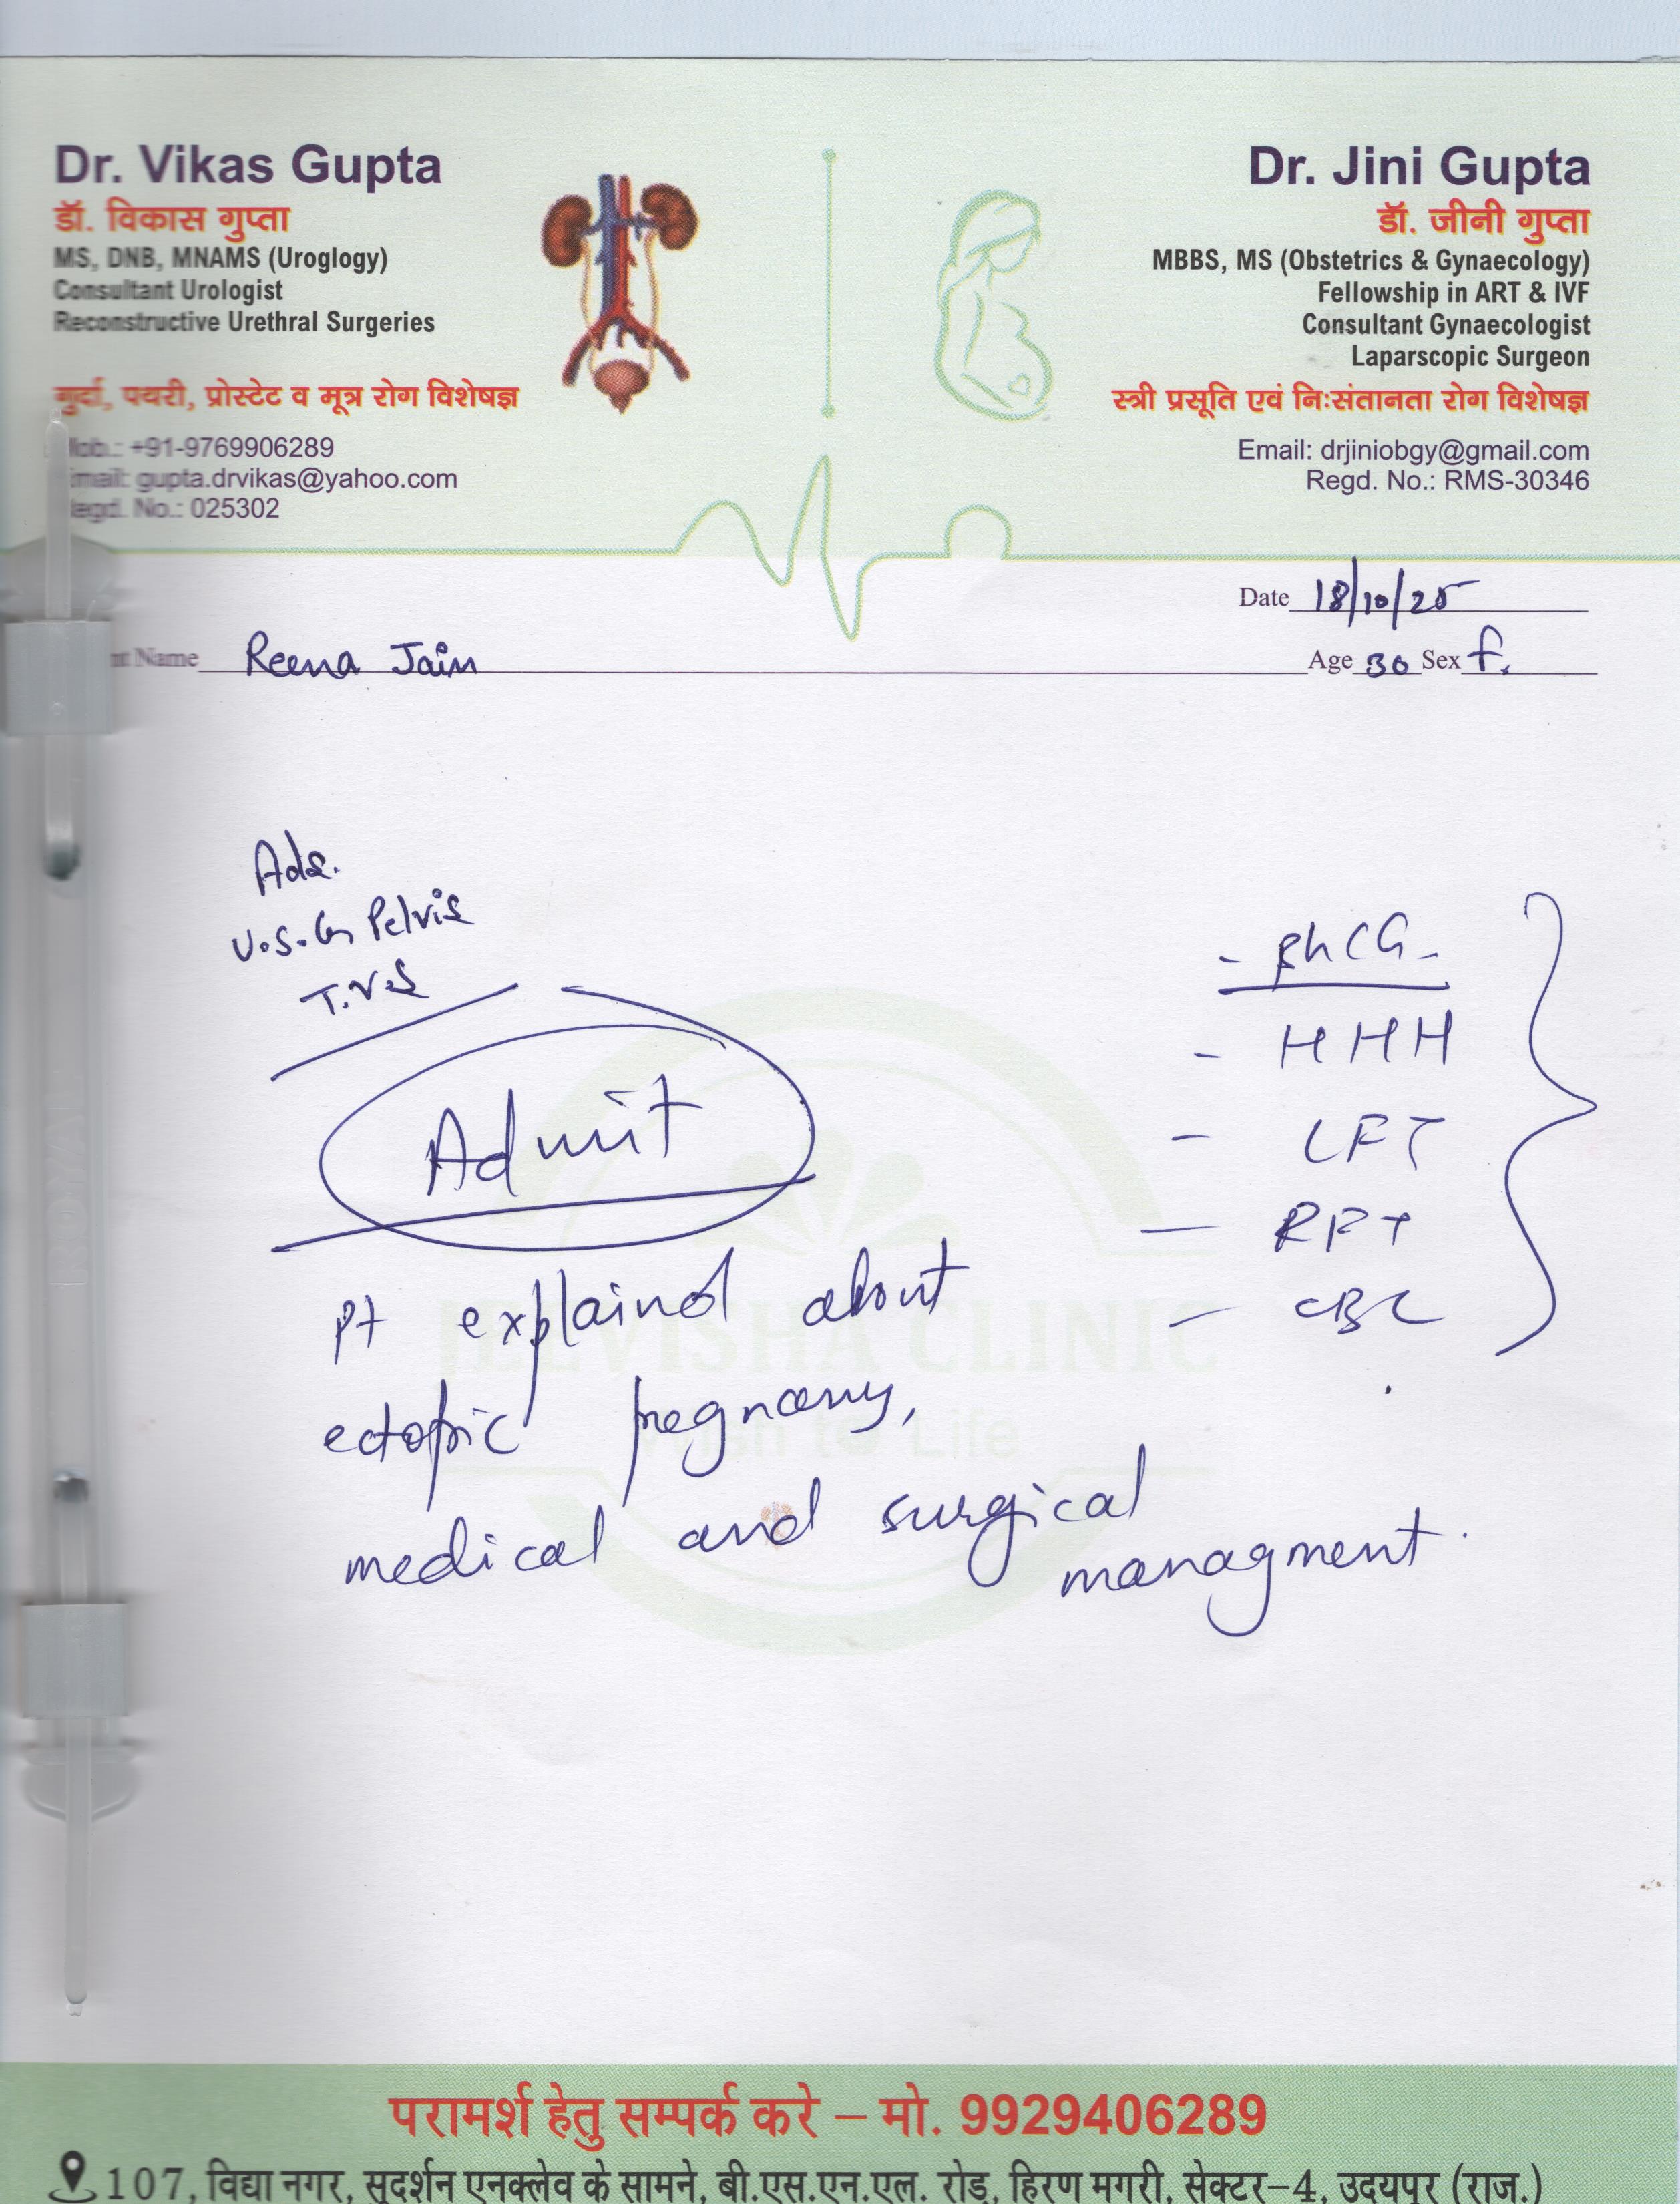 Dr. Vikas Gupta
डॉ. विकास गुप्ता
MS, DNB, MNAMS (Uroglogy)
Consultant Urologist
Reconstructive Urethral Surgeries
गुर्दा, पथरी, प्रोस्टेट व मूत्र रोग विशेषज्ञ
Mob.: +91-9769906289
Email: gupta.drvikas@yahoo.com
Regd. No.: 025302
Dr. Jini Gupta
डॉ. जीनी गुप्ता
MBBS, MS (Obstetrics & Gynaecology)
Fellowship in ART & IVF
Consultant Gynaecologist
Laparscopic Surgeon
स्त्री प्रसूति एवं निःसंतानता रोग विशेषज्ञ
Email: drjiniobgy@gmail.com
Regd. No.: RMS-30346
Date 18/10/25
nt Name Reena Jain Age 30 Sex F.
U.S.G Pelvis
T.V.S
Admit
- βhCG -
- HHH
- LFT
- RFT
- CBC
Pt explained about
ectopic pregnancy,
medical and surgical
managment.
JEEVISHA CLINIC
Wish to Life
ROYAL
परामर्श हेतु सम्पर्क करे – मो. 9929406289
107, विद्या नगर, सुदर्शन एनक्लेव के सामने, बी.एस.एन.एल. रोड़, हिरण मगरी, सेक्टर-4, उदयपुर (राज.)